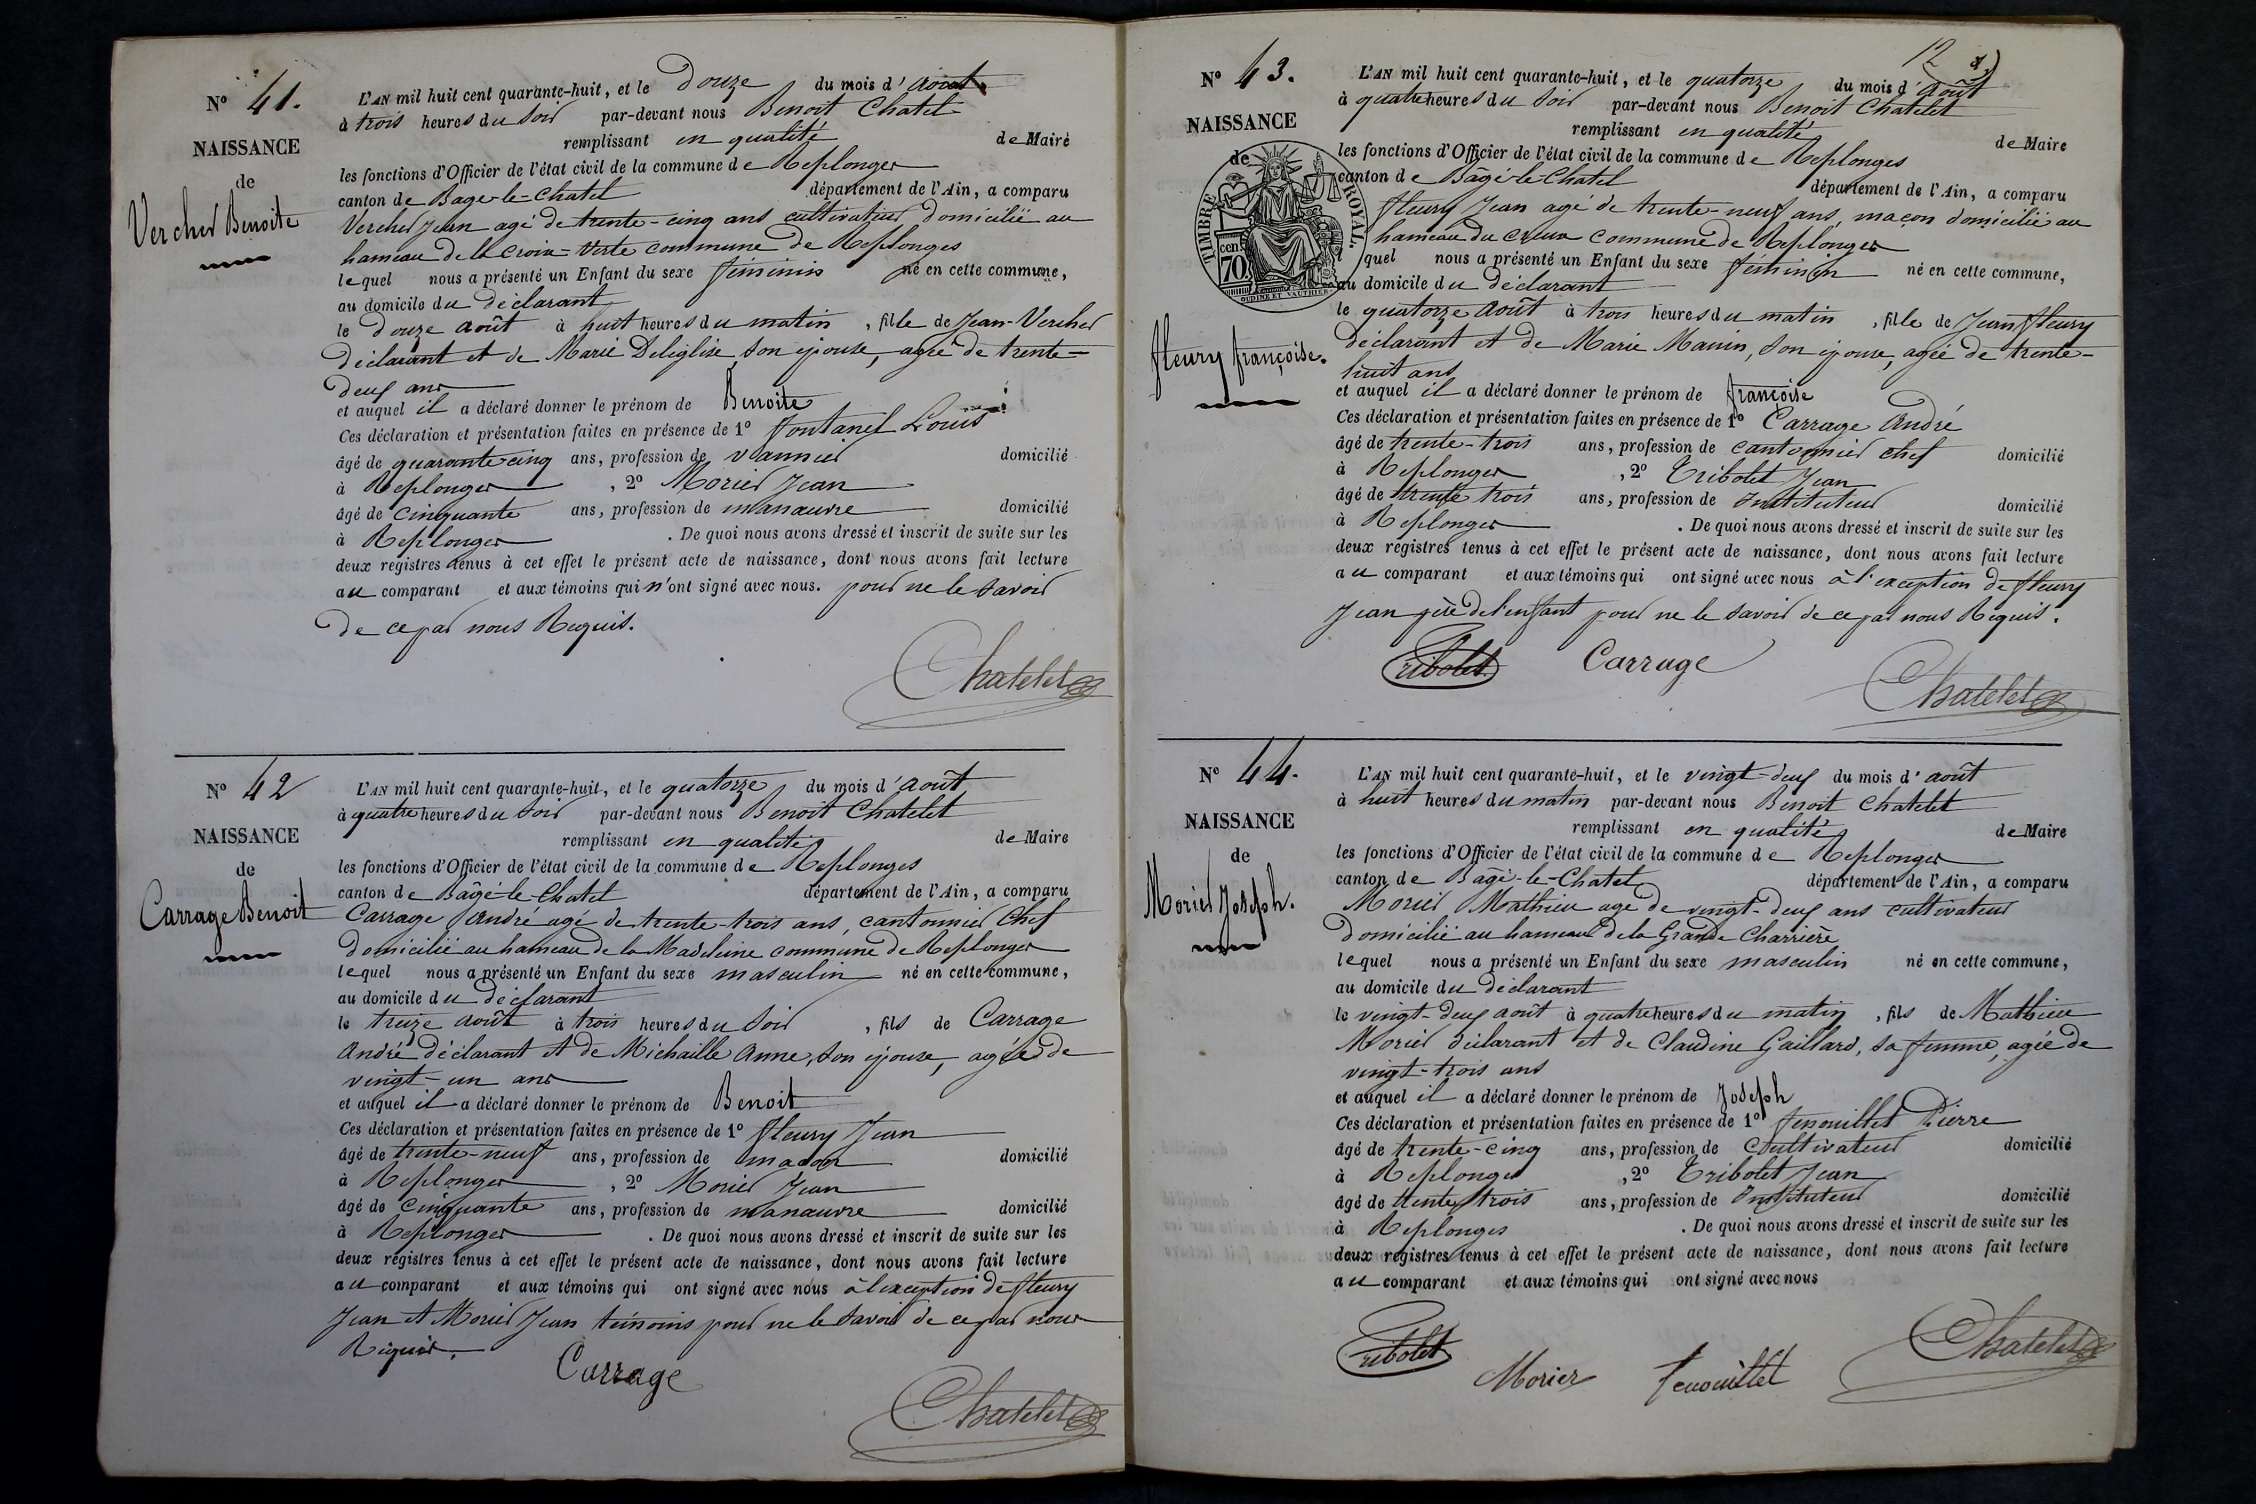 N° 41.
NAISSANCE
de
Vercher Benoite
L'AN mil huit cent quarante-huit, et le Douze du mois d'Août
à trois heures du Soir par-devant nous Benoit Chatel
remplissant en qualité de Maire
les fonctions d'Officier de l'état civil de la commune de Replonges
canton de Bage-le-Chatel département de l'Ain, a comparu
Vercher Jean agé de trente-cinq ans cultivateur domicilié au
hameau de la Croix-Verte commune de Replonges
lequel nous a présenté un Enfant du sexe féminin né en cette commune,
au domicile du déclarant
le Douze août à huit heures du matin, fille de Jean Vercher
Déclarant et de Marie Deliglise, son épouse, agée de trente-
deux ans
et auquel il a déclaré donner le prénom de Benoite
Ces déclaration et présentation faites en présence de 1° fontanel Louis
âgé de quarante cinq ans, profession de vannier domicilié
à Replonges, 2° Morier Jean
âgé de cinquante ans, profession de manœuvre domicilié
à Replonges. De quoi nous avons dressé et inscrit de suite sur les
deux registres tenus à cet effet le présent acte de naissance, dont nous avons fait lecture
au comparant et aux témoins qui n'ont signé avec nous. pour ne le savoir
de ce par nous Requis.
Chatelet
N° 42
NAISSANCE
de
Carrage Benoit
L'AN mil huit cent quarante-huit, et le quatorze du mois d'août
à quatre heures du Soir par-devant nous Benoit Chatelet
remplissant en qualité de Maire
les fonctions d'Officier de l'état civil de la commune de Replonges
canton de Bâgé-le-Chatel département de l'Ain, a comparu
Carrage André agé de trente-trois ans, cantonnier Chef
domicilié au hameau de la Madeleine commune de Replonges
lequel nous a présenté un Enfant du sexe masculin né en cette commune,
au domicile du déclarant
le treize août à trois heures du Soir, fils de Carrage
André déclarant et de Michaille Anne, son épouse, agée de
vingt-un ans
et auquel il a déclaré donner le prénom de Benoit
Ces déclaration et présentation faites en présence de 1° fleury Jean
âgé de trente-neuf ans, profession de maçon domicilié
à Replonges, 2° Morier Jean
âgé de cinquante ans, profession de manœuvre domicilié
à Replonges. De quoi nous avons dressé et inscrit de suite sur les
deux registres tenus à cet effet le présent acte de naissance, dont nous avons fait lecture
au comparant et aux témoins qui ont signé avec nous à l'exception de fleury
Jean et Morier Jean témoins pour ne le savoir de ce par nous
Requis.
Carrage
Chatelet
12
N° 43.
NAISSANCE
de
TIMBRE ROYAL.
cen. 70
OUDINÉ ET VAUTHIER
fleury françoise.
L'AN mil huit cent quarante-huit, et le quatorze du mois d'août
à quatre heures du Soir par-devant nous Benoit Chatelet
remplissant en qualité de Maire
les fonctions d'Officier de l'état civil de la commune de Replonges
canton de Bâgé-le-Chatel département de l'Ain, a comparu
fleury Jean agé de trente-neuf ans, maçon domicilié au
hameau du Creux commune de Replonges
quel nous a présenté un Enfant du sexe féminin né en cette commune,
au domicile du déclarant
le quatorze août à trois heures du matin, fille de Jean fleury
déclarant et de Marie Manin, son épouse, agée de trente-
huit ans
et auquel il a déclaré donner le prénom de françoise
Ces déclaration et présentation faites en présence de 1° Carrage André
âgé de trente-trois ans, profession de cantonnier chef domicilié
à Replonges, 2° Tribolet Jean
âgé de trente trois ans, profession de Instituteur domicilié
à Replonges. De quoi nous avons dressé et inscrit de suite sur les
deux registres tenus à cet effet le présent acte de naissance, dont nous avons fait lecture
au comparant et aux témoins qui ont signé avec nous à l'exception de fleury
Jean père de l'enfant pour ne le savoir de ce par nous Requis.
Tribolet Carrage
Chatelet
N° 44.
NAISSANCE
de
Morier Joseph.
L'AN mil huit cent quarante-huit, et le vingt-deux du mois d'août
à huit heures du matin par-devant nous Benoit Chatelet
remplissant en qualité de Maire
les fonctions d'Officier de l'état civil de la commune de Replonges
canton de Bâgé-le-Chatel département de l'Ain, a comparu
Morier Mathieu agé de vingt-deux ans cultivateur
domicilié au hameau de la Grande Charrière
lequel nous a présenté un Enfant du sexe masculin né en cette commune,
au domicile du déclarant
le vingt-deux août à quatre heures du matin, fils de Mathieu
Morier déclarant et de Claudine Gaillard, sa femme, agée de
vingt-trois ans
et auquel il a déclaré donner le prénom de Joseph
Ces déclaration et présentation faites en présence de 1° fenouillet Pierre
âgé de trente-cinq ans, profession de cultivateur domicilié
à Replonges, 2° Tribolet Jean
âgé de trente trois ans, profession de Instituteur domicilié
à Replonges. De quoi nous avons dressé et inscrit de suite sur les
deux registres tenus à cet effet le présent acte de naissance, dont nous avons fait lecture
au comparant et aux témoins qui ont signé avec nous
Tribolet Morier fenouillet Chatelet